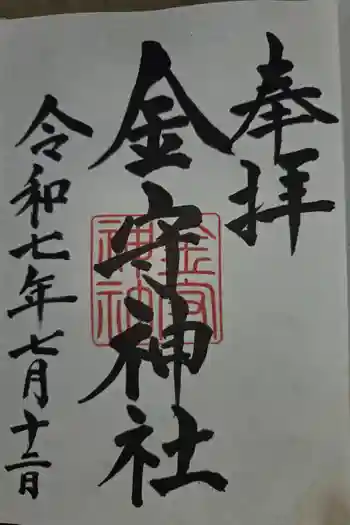 奉拝
金守神社
令和七年七月十二日
金守
神社